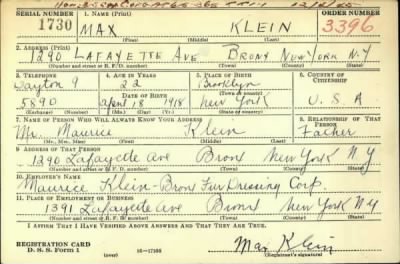 SERIAL NUMBER 1. NAME (Print) ORDER NUMBER
1730 MAX KLEIN 3396
(First) (Middle) (Last)
2. ADDRESS (Print)
1290 LAFAYETTE AVE BRONX NEW YORK N.Y
(Number and street or R. F. D. number) (Town) (County) (State)
3. TELEPHONE 4. AGE IN YEARS 5. PLACE OF BIRTH 6. COUNTRY OF CITIZENSHIP
Dayton 9 22 Brooklyn
DATE OF BIRTH (Town or county)
5890 april 18 1918 New York U.S.A
(Exchange) (Number) (Mo.) (Day) (Yr.) (State or country)
7. NAME OF PERSON WHO WILL ALWAYS KNOW YOUR ADDRESS 8. RELATIONSHIP OF THAT PERSON
Mr. Maurice Klein Father
(Mr., Mrs., Miss) (First) (Middle) (Last)
9. ADDRESS OF THAT PERSON
1290 Lafayette Ave Bronx New York N Y
(Number and street or R. F. D. number) (Town) (County) (State)
10. EMPLOYER'S NAME
Maurice Klein-Bronx Fur Dressing Corp.
11. PLACE OF EMPLOYMENT OR BUSINESS
1391 Lafayette Ave Bronx New York NY
(Number and street or R. F. D. number) (Town) (County) (State)
I AFFIRM THAT I HAVE VERIFIED ABOVE ANSWERS AND THAT THEY ARE TRUE.
REGISTRATION CARD
D. S. S. FORM 1 16-17105 Max Klein
(over) (Registrant's signature)